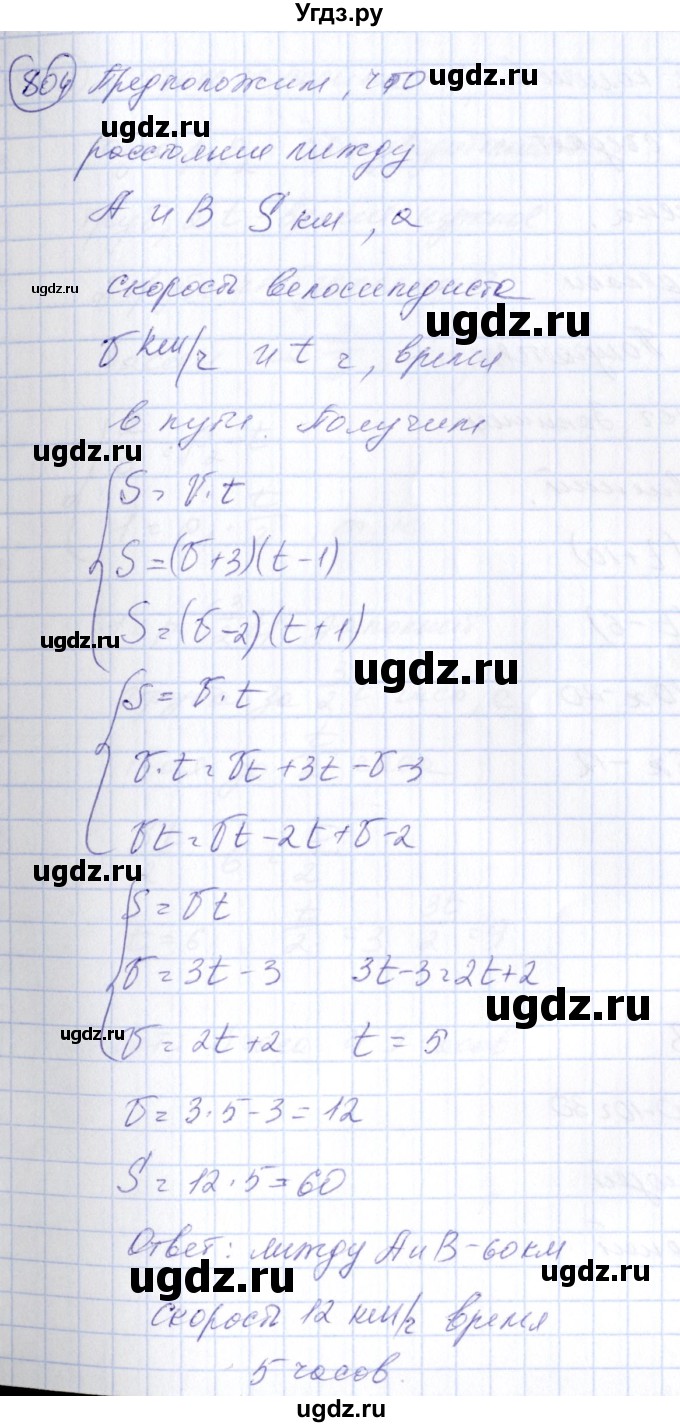 Угдз.ру
804 Предположим, что
ugdz.ru
расстояние между
А и В S км, а
ugdz.ru
ugdz.ru
скорость велосипедиста
ugdz.ru
v км/ч и t ч, время
в пути. Получим
ugdz.ru
S = v·t
S = (v+3)(t-1)
S = (v-2)(t+1)
ugdz.ru
ugdz.ru
S = v·t
v·t = vt + 3t - v - 3
vt = vt - 2t + v - 2
ugdz.ru
S = vt
v = 3t - 3 3t - 3 = 2t + 2
ugdz.ru
v = 2t + 2 t = 5
ugdz.ru
v = 3·5 - 3 = 12
S = 12·5 = 60
Ответ: между А и В - 60 км
ugdz.ru
ugdz.ru
скорость 12 км/ч время
5 часов.
ugdz.ru